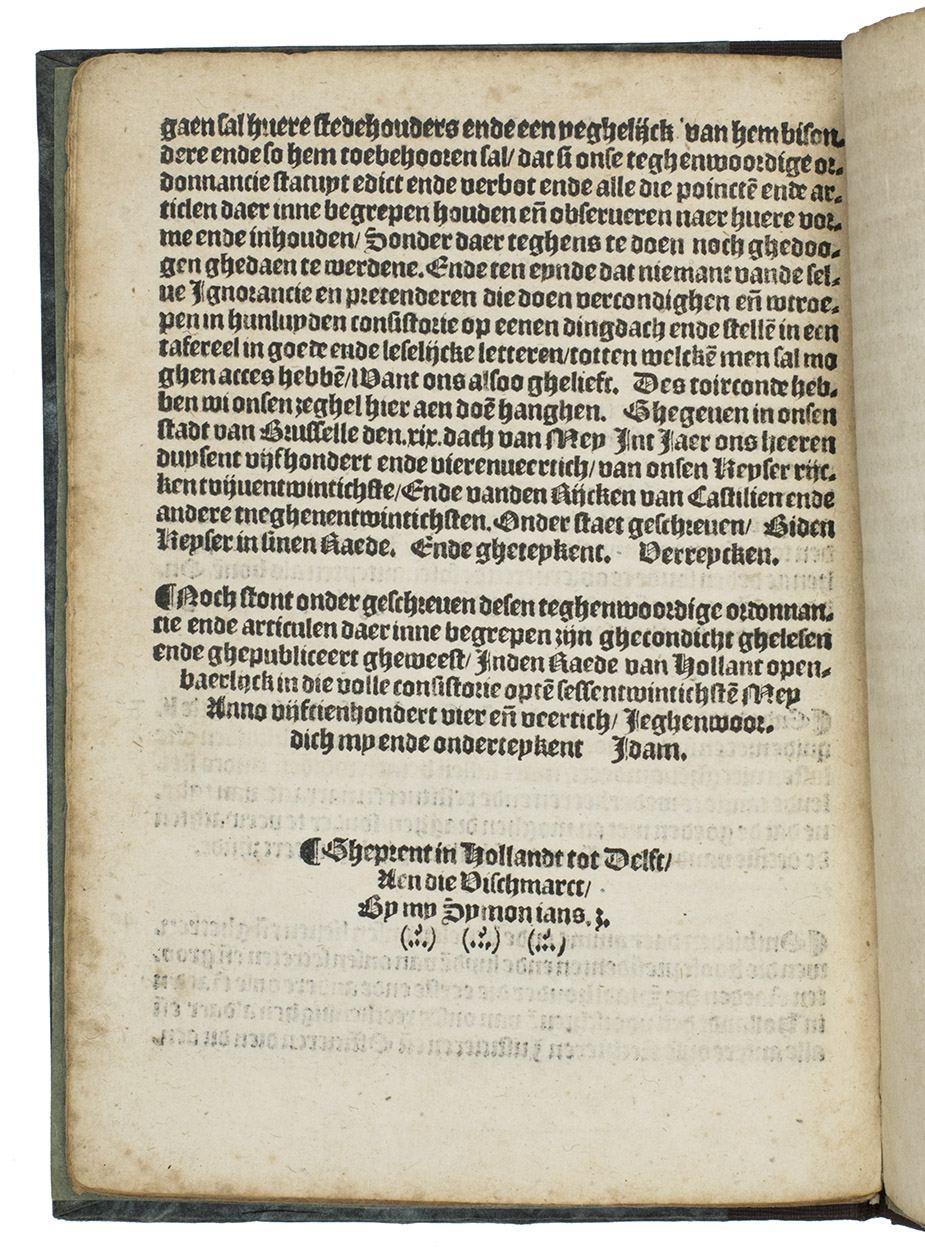 gaen sal huere stedehouders ende een yeghelijck van hem bison-
dere ende so hem toebehooren sal/ dat si onse teghenwoordige or-
donnancie statuyt edict ende verbot ende alle die poinctē ende ar-
ticlen daer inne begrepen houden eñ obserueren naer huere vor-
me ende inhouden/ Sonder daer teghens te doen noch ghedoo-
gen ghedaen te werdene. Ende ten eynde dat niemant vande sel-
ue Ignorancie en pretenderen die doen vercondighen eñ wtroe-
pen in hunluyden consistorie op eenen dingdach ende stellē in een
tafereel in goede ende leselijcke letteren/ totten welckē men sal mo
ghen acces hebbē/ Want ons alsoo ghelieft. Des toirconde heb-
ben wi onsen zeghel hier aen doē hanghen. Ghegeuen in onsen
stadt van Brusselle den.xix.dach van Mey Int Jaer ons heeren
duysent vijfhondert ende vierenueertich/ van onsen Keyser rijc-
ken tvijuentwintichste/ Ende vanden Rijcken van Castilien ende
andere tneghenentwintichsten. Onder staet geschreuen/ Biden
Keyser in sinen Raede. Ende gheteykent. Verreycken.
¶Noch stont onder geschreuen desen teghenwoordige ordonnan-
tie ende articulen daer inne begrepen zijn ghecondicht ghelesen
ende ghepubliceert gheweest/ Inden Raede van Hollant open-
baerlijck in die volle consistorie optē sessentwintichstē Mey
Anno vijftienhondert vier eñ veertich/ Jeghenwoor-
dich my ende onderteykent Jdam.
¶Gheprent in Hollandt tot Delft/
Aen die Vischmarct/
By my Symon ians. z.
(∴) (∴) (∴)